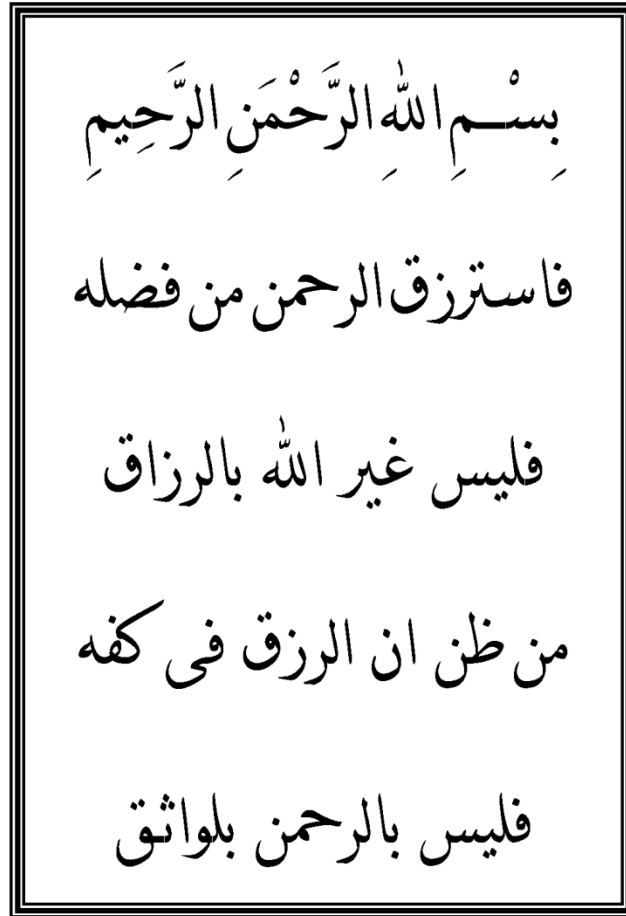 بِسْــمِ اللهِ الرَّحْمَنِ الرَّحِيمِ
فاسترزق الرحمن من فضله
فليس غير الله بالرزاق
من ظن ان الرزق فى كفه
فليس بالرحمن بلواثق